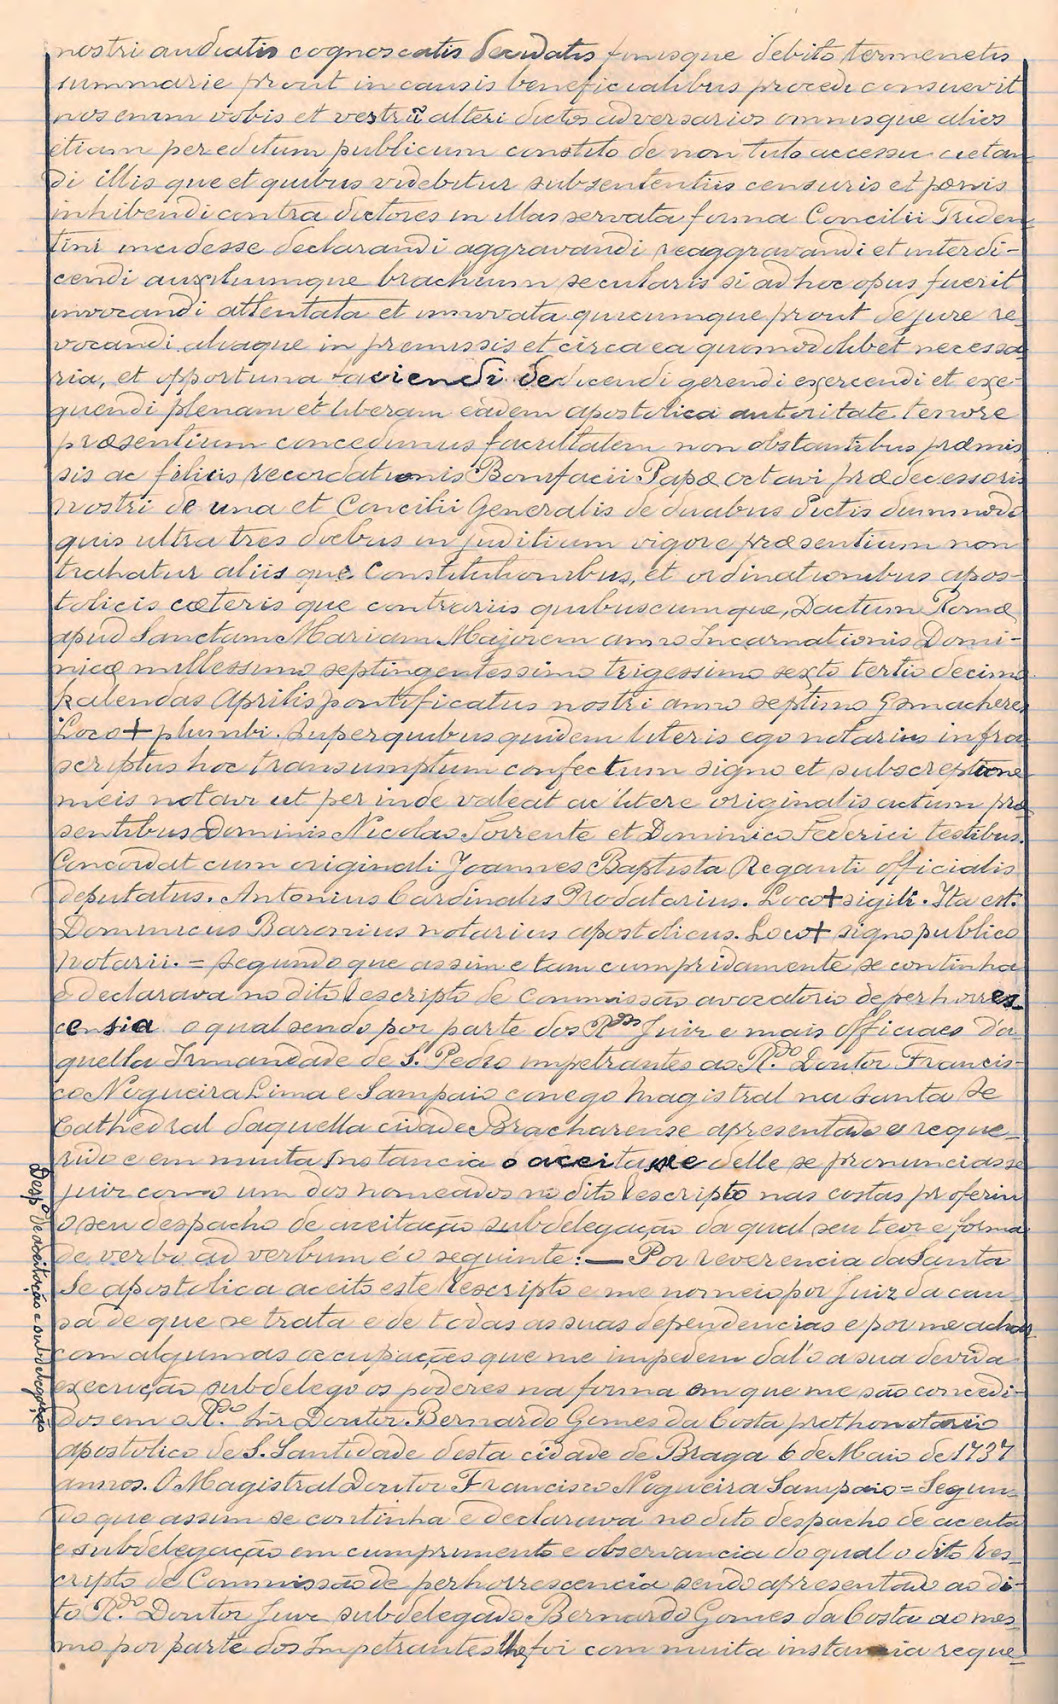 nostri audiatis cognoscatis decidatis finisque debito termenetis
summarie prout in causis beneficialibus procedi consuevit
nos enim vobis et vestrũ alteri dictos adversarios omnisque alios
etiam per editum publicum constito de non tuto accessu cietan
di illis que et quibus videbitur sub sententiis censuris et pœnis
inhibendi contra dictores in illas servata forma Concilii Triden
tini incidesse declarandi aggravandi reaggravandi et interdi-
cendi auxiliumque brachium secularis si ad hoc opus fuerit
invocandi attentata et innovata quicumque prout de jure re-
vocandi aliaque in premissis et circa ea quomodolibet necessa
ria, et opportuna faciendi dedicendi gerendi exercendi et exe-
quendi plenam et liberam eadem apostolica autoritate tenore
præsentium concedimus facultatem non obstantibus præmis
sis ac filicis recordationis Bonifacii Papæ octavi prædecessoris
nostri de una et Concilii Generalis de duabus dictis dummodo
quis ultra tres diebus in juditium vigore præsentium non
trahatur aliis que Constitutionibus, et ordinationibus apos-
tolicis cæteris que contrariis quibuscumque, Dactum Romæ
apud Sanctam Mariam Majorem anno Incarnationis Domi-
nicæ millessimo septingentessimo trigessimo sexto tertio decimo
kalendas Aprilis pontificatus nostri anno septimo Gmachere,
Loco + plumbi. Super quibus quidem literis ego notarius infra
scriptus hoc transumptum confectum signo et subscreptione
meis notavi ut per inde valeat ac litere originalis actum præ
sentibus Dominis Nicolao Torrente et Dominico Federici testibus.
Concordat cum originali Joannes Baptista Reganti officialis
deputatus. Antonius Cardinalis Prodatarius. Loco + sigili. Ita est.
Dominicus Baronius notarius apostolicus. Loco + signo publico
notarii. = Segundo que assim e tam cumpridamente se continha
e declarava no dito rescripto de Commissão avocatorio de perhorres-
censia o qual sendo por parte dos R.dos Juiz e mais officiaes da-
quella Irmandade de S. Pedro impetrantes ao R.do Doutor Francis-
co Nogueira Lima e Sampaio conego magistral na Santa Se
Cathedral daquella cidade Bracharense apresentado e reque-
rido e em muita instancia o aceitasse delle se pronunciasse
juiz como um dos nomeados no dito rescripto nas costas proferiu
o seu despacho de aceitação subdelegação da qual seu teor e forma
de verbo ad verbum é o seguinte: — Por reverencia da Santa
Se apostolica aceito este rescripto e me nomeio por Juiz da cau-
sa de que se trata e de todas as suas dependencias e por me achar
com algumas occupações que me impedem dal'o a sua devida
execução subdelego os poderes na forma em que me são concedi-
dos em o R.do Snr Doutor Bernardo Gomes da Costa prothonotario
apostolico de S. Santidade desta cidade de Braga 6 de Maio de 1737
annos. O Magistral Doutor Francisco Nogueira Sampaio = Segun-
do que assim se continha e declarava no dito despacho de aceita
e subdelegação em cumprimento e observancia do qual o dito res-
cripto de Commissão de perhorrescencia sendo apresentado ao di-
to R.do Doutor Juiz subdelegado Bernardo Gomes da Costa ao mes-
mo por parte dos Impetrantes lhe foi com muita instancia reque-
Desp.o de aceitação e subdelegação